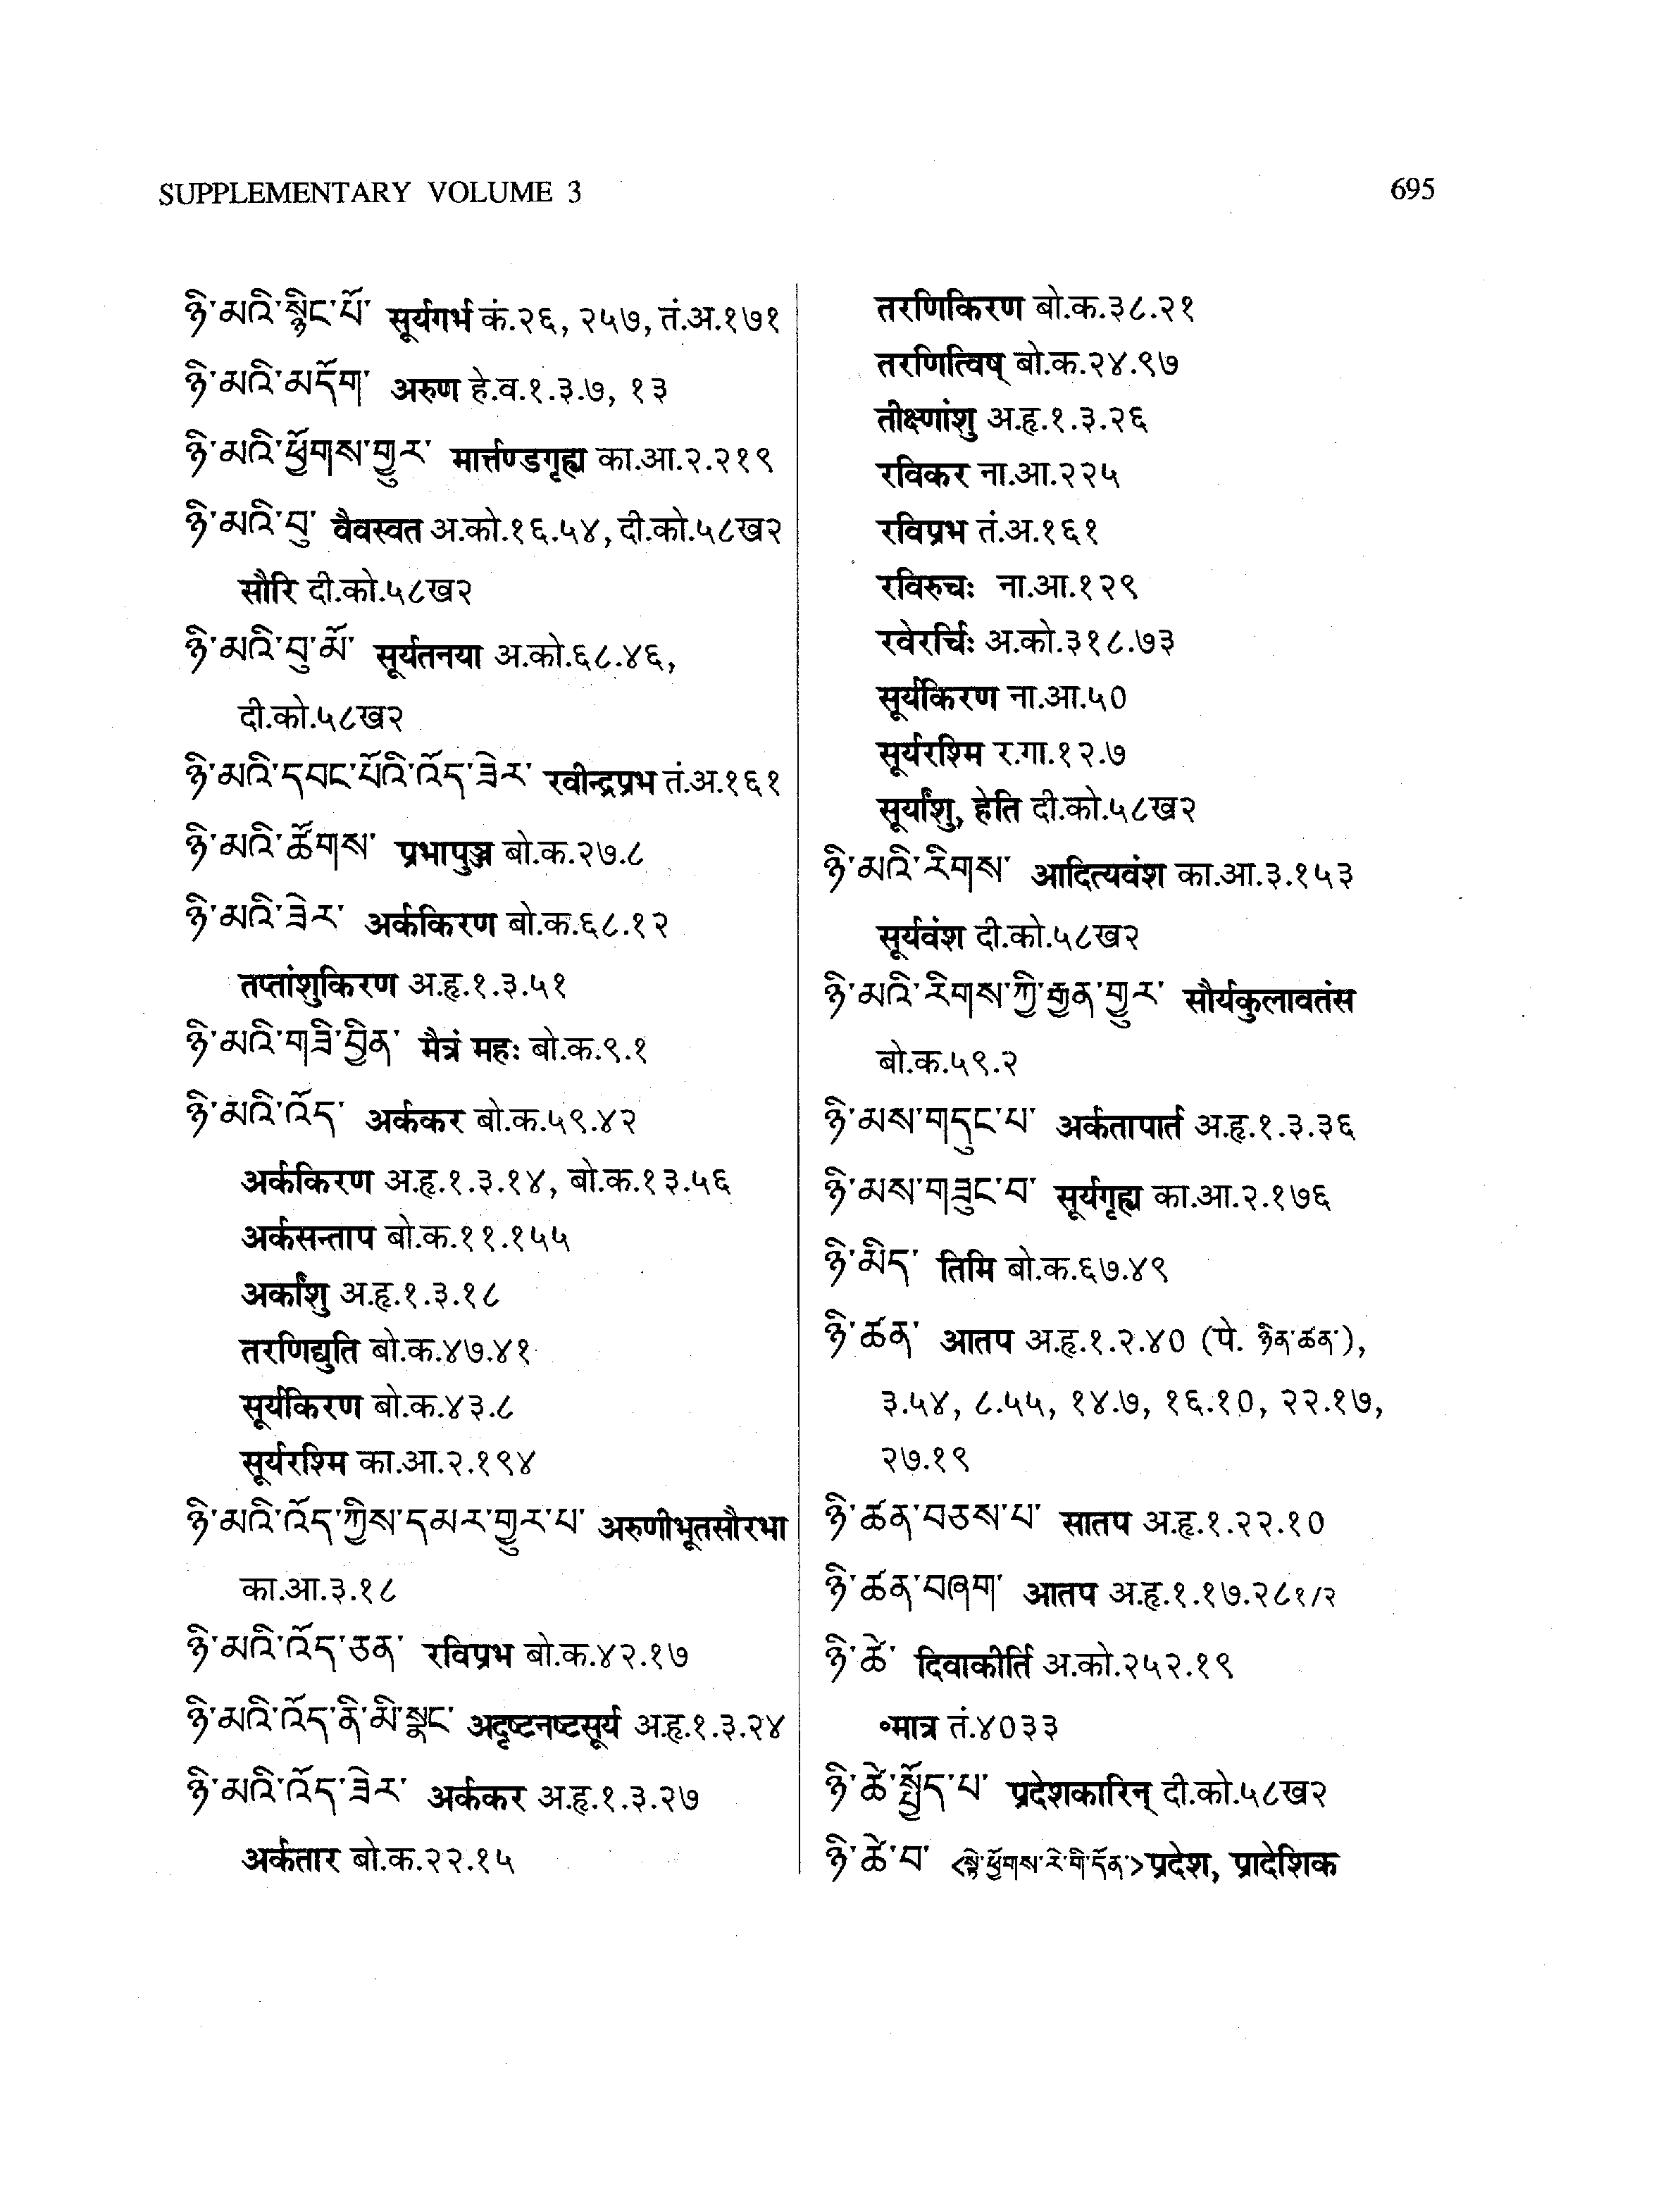 SUPPLEMENTARY VOLUME 3 695
ཉི་མའི་སྙིང་པོ་ सूर्यगर्भ कं.२६, २५७, तं.अ.१७१
ཉི་མའི་མདོག་ अरुण हे.व.१.३.७, १३
ཉི་མའི་ཕྱོགས་གྱུར་ मार्त्तण्डगृह्य का.आ.२.२१९
ཉི་མའི་བུ་ वैवस्वत अ.को.१६.५४, दी.को.५८ख२
सौरि दी.को.५८ख२
ཉི་མའི་བུ་མོ་ सूर्यतनया अ.को.६८.४६,
दी.को.५८ख२
ཉི་མའི་དབང་པོའི་འོད་ཟེར་ रवीन्द्रप्रभ तं.अ.१६१
ཉི་མའི་ཚོགས་ प्रभापुञ्ज बो.क.२७.८
ཉི་མའི་ཟེར་ अर्ककिरण बो.क.६८.१२
तप्तांशुकिरण अ.हृ.१.३.५१
ཉི་མའི་གཟི་བྱིན་ मैत्रं महः बो.क.९.१
ཉི་མའི་འོད་ अर्ककर बो.क.५९.४२
अर्ककिरण अ.हृ.१.३.१४, बो.क.१३.५६
अर्कसन्ताप बो.क.११.१५५
अर्कांशु अ.हृ.१.३.१८
तरणिद्युति बो.क.४७.४१
सूर्यकिरण बो.क.४३.८
सूर्यरश्मि का.आ.२.१९४
ཉི་མའི་འོད་ཀྱིས་དམར་གྱུར་པ་ अरुणीभूतसौरभा
का.आ.३.१८
ཉི་མའི་འོད་ཅན་ रविप्रभ बो.क.४२.१७
ཉི་མའི་འོད་ནི་མི་སྣང་ अदृष्टनष्टसूर्य अ.हृ.१.३.२४
ཉི་མའི་འོད་ཟེར་ अर्ककर अ.हृ.१.३.२७
अर्कतार बो.क.२२.१५
तरणिकिरण बो.क.३८.२१
तरणित्विष् बो.क.२४.९७
तीक्ष्णांशु अ.हृ.१.३.२६
रविकर ना.आ.२२५
रविप्रभ तं.अ.१६१
रविरुचः ना.आ.१२९
रवेरर्चिः अ.को.३१८.७३
सूर्यकिरण ना.आ.५०
सूर्यरश्मि र.गा.१२.७
सूर्यांशु, हेति दी.को.५८ख२
ཉི་མའི་རིགས་ आदित्यवंश का.आ.३.१५३
सूर्यवंश दी.को.५८ख२
ཉི་མའི་རིགས་ཀྱི་རྒྱན་གྱུར་ सौर्यकुलावतंस
बो.क.५९.२
ཉི་མས་གདུང་པ་ अर्कतापार्त अ.हृ.१.३.३६
ཉི་མས་གཟུང་བ་ सूर्यगृह्य का.आ.२.१७६
ཉི་མིད་ तिमि बो.क.६७.४९
ཉི་ཚན་ आतप अ.हृ.१.२.४० (पे. ཉིན་ཚན་),
३.५४, ८.५५, १४.७, १६.१०, २२.१७,
२७.१९
ཉི་ཚན་བཅས་པ་ सातप अ.हृ.१.२२.१०
ཉི་ཚན་བཞག་ आतप अ.हृ.१.१७.२८१/२
ཉི་ཚེ་ दिवाकीर्ति अ.को.२५२.१९
॰मात्र तं.४०३३
ཉི་ཚེ་སྤྱོད་པ་ प्रदेशकारिन् दी.को.५८ख२
ཉི་ཚེ་བ་ <སྟེ་ཕྱོགས་རེ་གི་དོན་>प्रदेश, प्रादेशिक